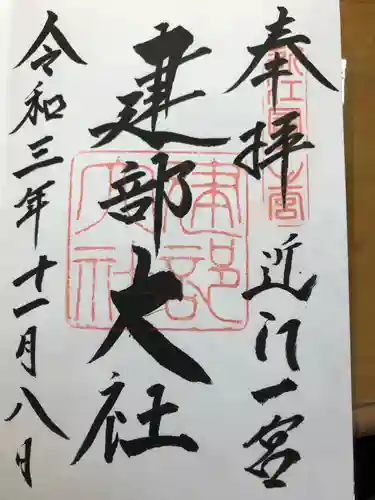 奉拝
近江一宮
建部大社
令和三年十一月八日
近江國一之宮
建部大社